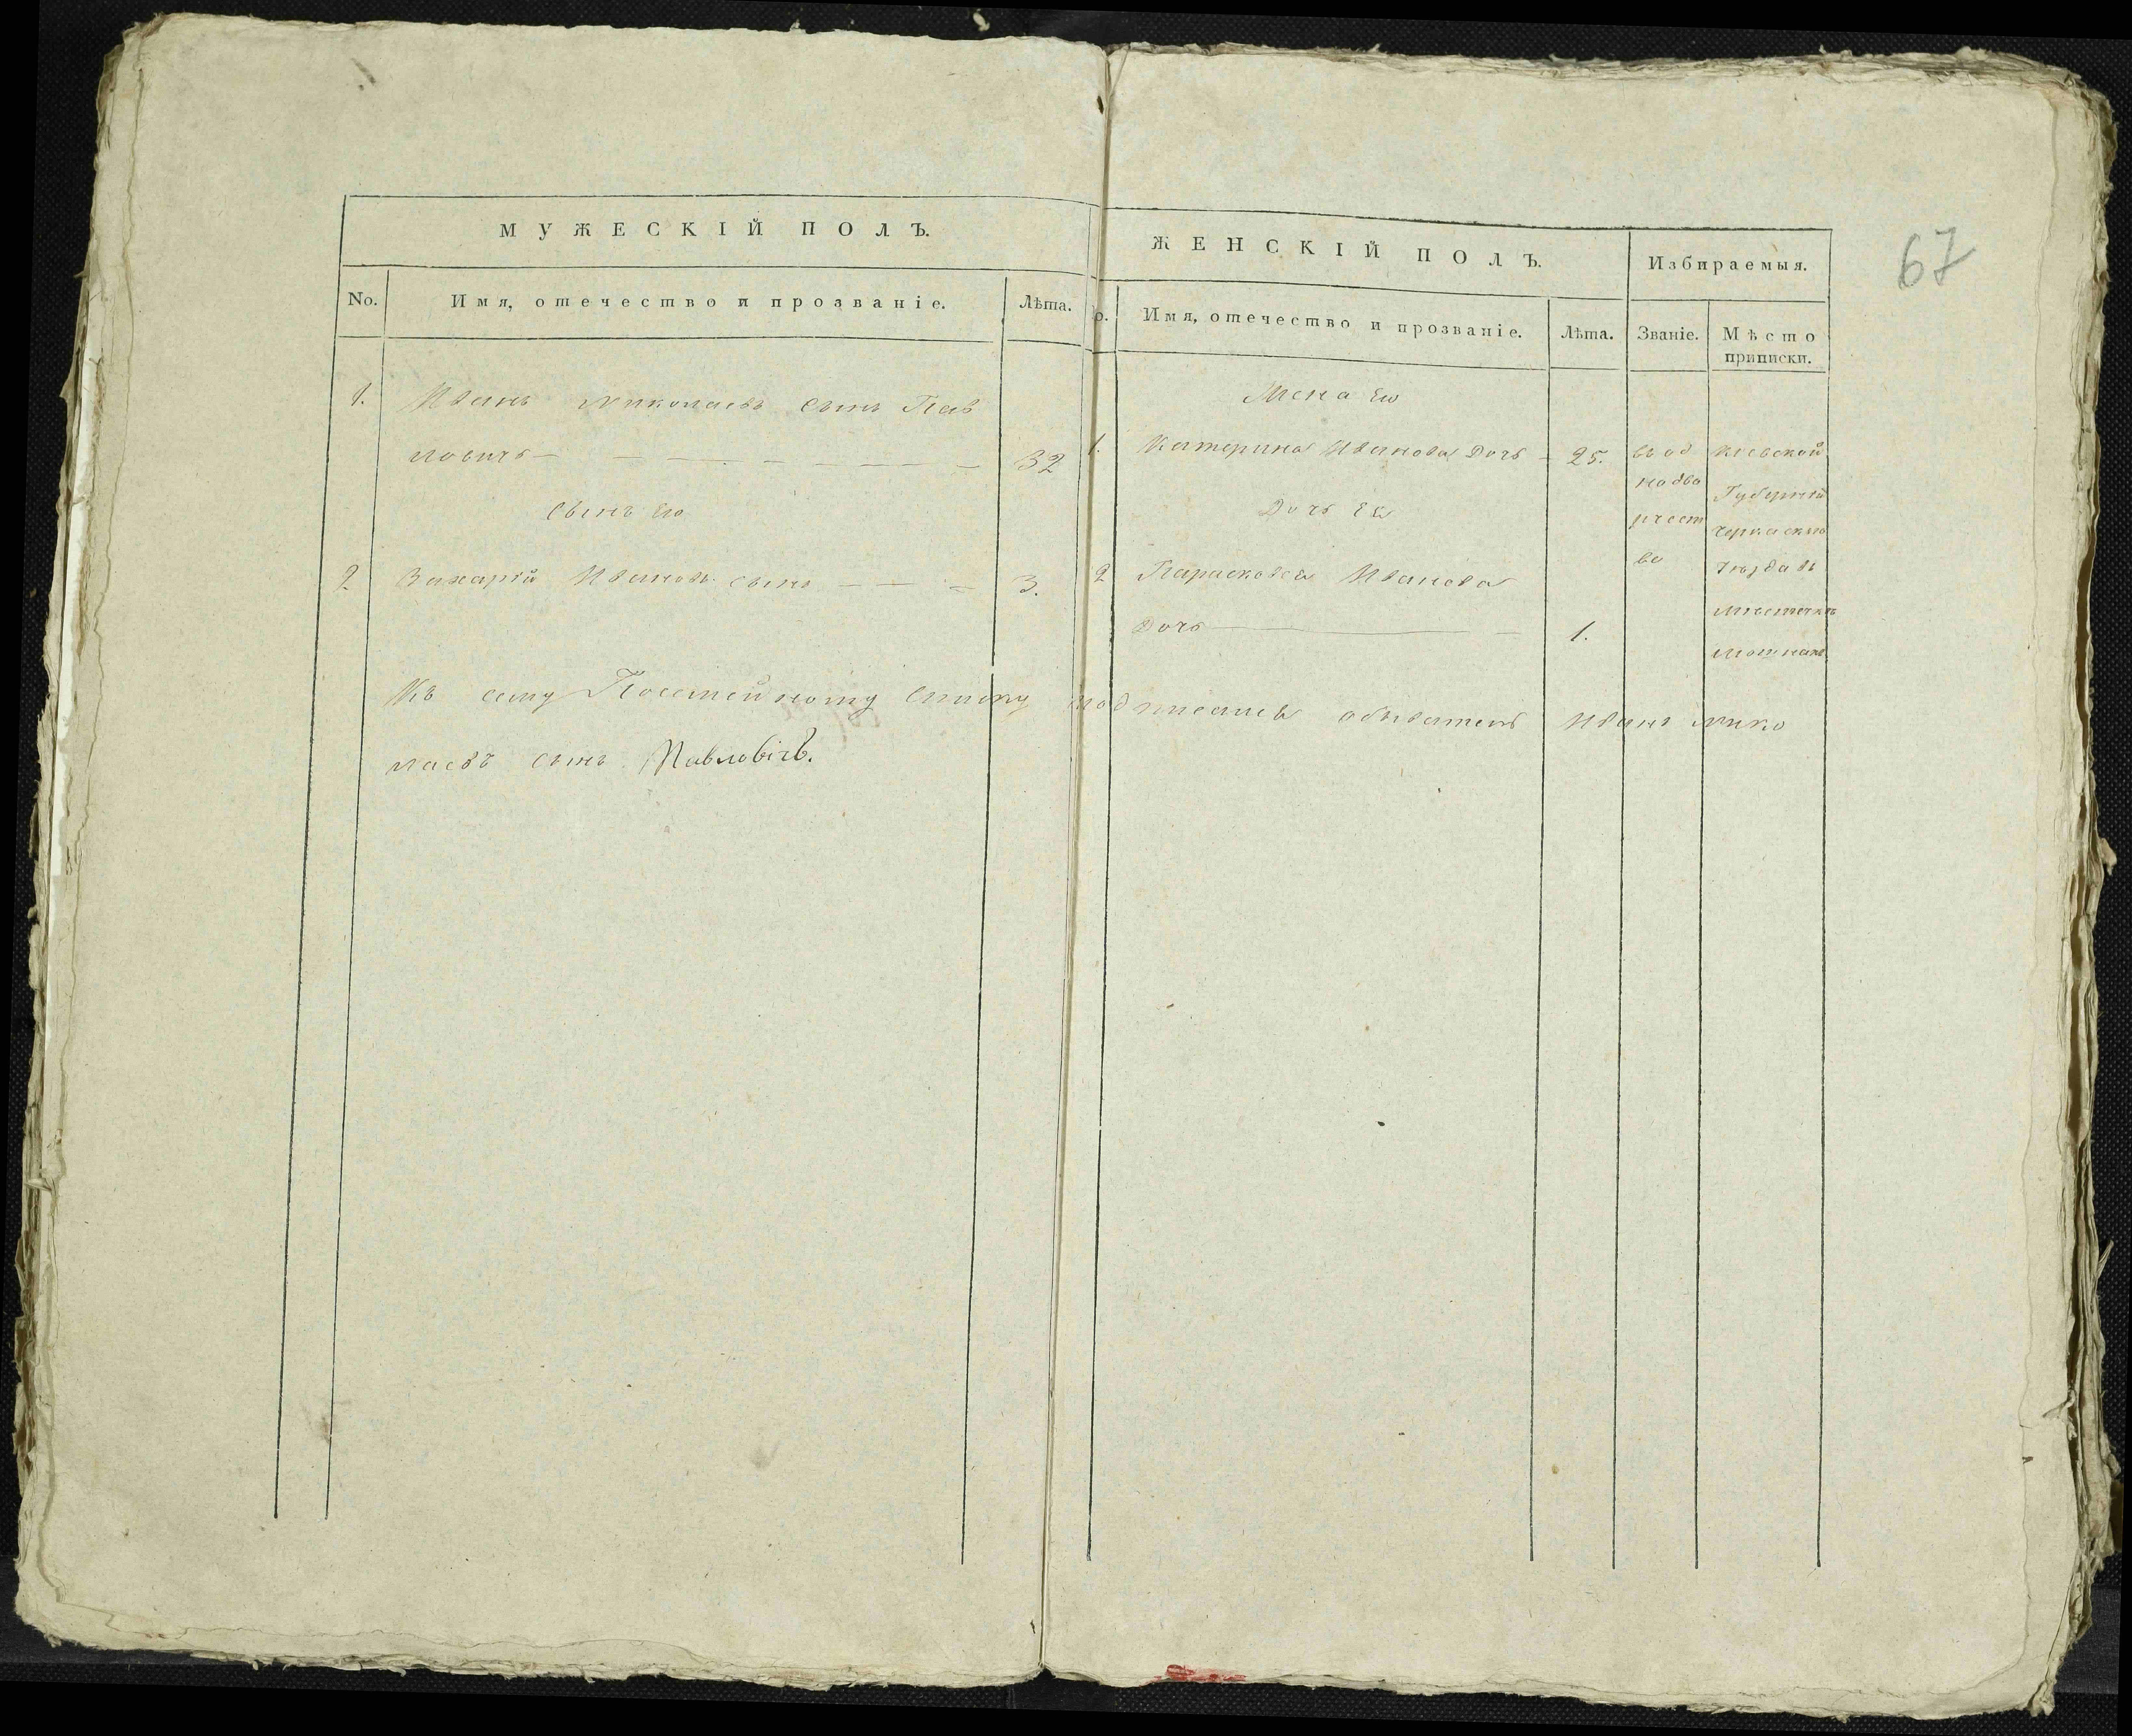 МУЖЕСКІЙ ПОЛЪ.
No.
Имя, отечество и прозваніе.
Лѣта.
1.
Иванъ Николаевъ сынъ Пав
ловичъ
32
Сынъ Его
2.
Захарій Ивановъ сынъ
3.
ЖЕНСКІЙ ПОЛЪ.
Избираемыя.
67
о.
Имя, отечество и прозваніе.
Лѣта.
Званіе.
Мѣсто
приписки.
Жена Его
1.
Катерина Иванова Дочь
25.
Дочь Ея
2
Парасковея Иванова
Дочь
1.
въ од
нодво
рчест
во
Кіевской
Губерніи
Черкаского
Уѣзда въ
мѣстечкѣ
Мошнахъ
Къ сему Посемейному Списку подписался обыватель Иванъ Нико
лаевъ сынъ Павловічъ.